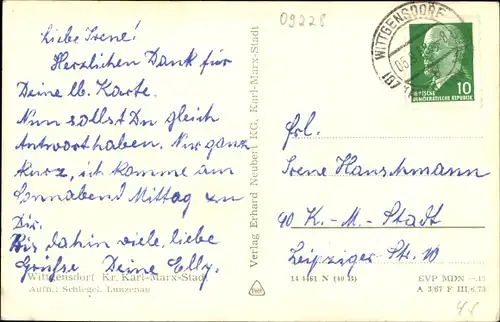 Liebe Irene!
Herzlichen Dank für
Deine lb. Karte.
Nun sollst Du gleich
Antwort haben. Nur ganz
kurz, ich komme am
Sonnabend Mittag zu
Dir.
Bis dahin viele, liebe
Grüße Deine Elly.
Wittgensdorf Kr. Karl-Marx-Stadt
Aufn.: Schlegel, Lunzenau
Verlag Erhard Neubert KG, Karl-Marx-Stadt
09228
WITTGENSDORF
10
DEUTSCHE
DEMOKRATISCHE REPUBLIK
Frl.
Irene Hanschmann
90 K.-M.-Stadt
Leipziger-Str. 10
EVP MDN
A 3/67 F III/6 73